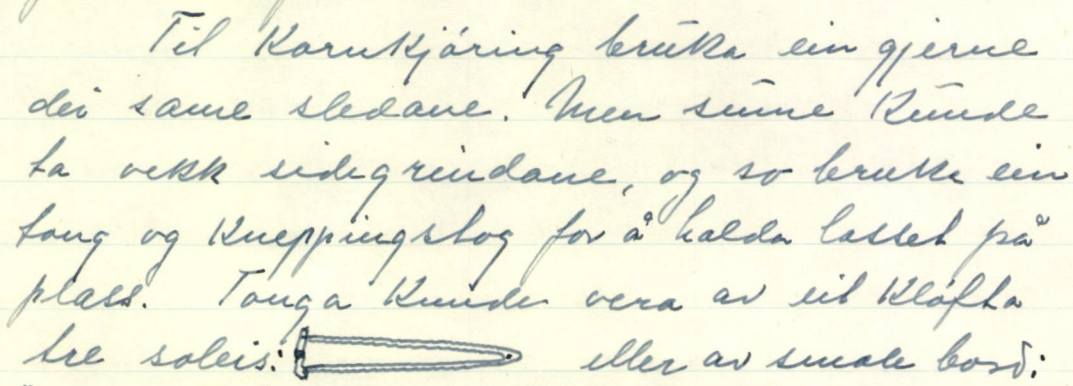 Til kornkjöring bruka ein gjerne
dei same sledane. Men sume kunde
ta vekk sidegrindane, og so bruka ein
tong og kneppingstog for å halda lasset på
plass. Tonga kunde vera av eit kløfta
tre soleis: eller av smale bord: